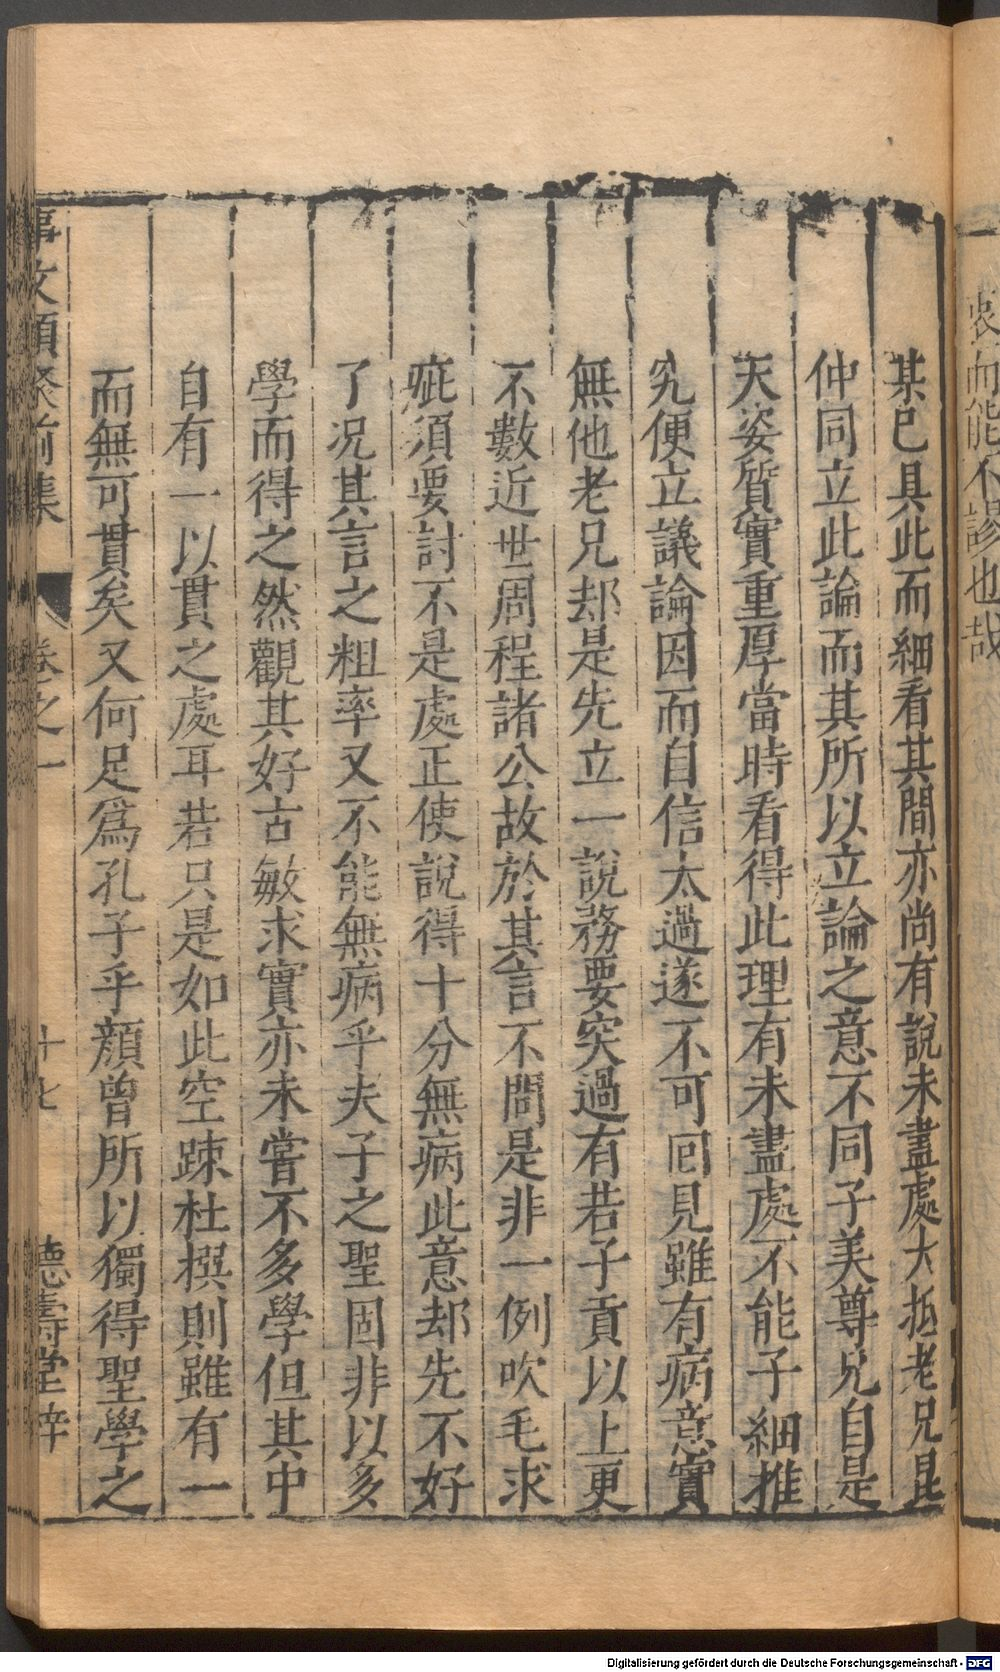 某已具此而細看其間亦尚有說未盡處大抵老兄昆
仲同立此論而其所以立論之意不同子美尊兄自是
天姿質實重厚當時看得此理有未盡處不能子細推
究便立議論因而自信太過遂不可回見雖有病意實
無他老兄却是先立一說務要突過有若子貢以上更
不數近世周程諸公故於其言不問是非一例吹毛求
疵須要討不是處正使說得十分無病此意却先不好
了况其言之粗率又不能無病乎夫子之聖固非以多
學而得之然觀其好古敏求實亦未嘗不多學但其中
自有一以貫之處耳若只是如此空踈杜撰則雖有一
而無可貫矣又何足爲孔子乎顏曾所以獨得聖學之
事文類聚前集 卷之一 十七 德壽堂梓
而能不謬也哉
Digitalisierung gefördert durch die Deutsche Forschungsgemeinschaft - DFG